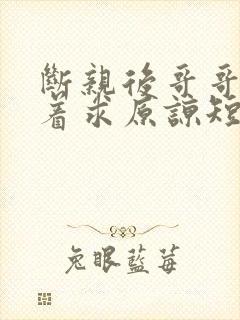 斷親後哥哥
着求原諒短
兔眼藍莓